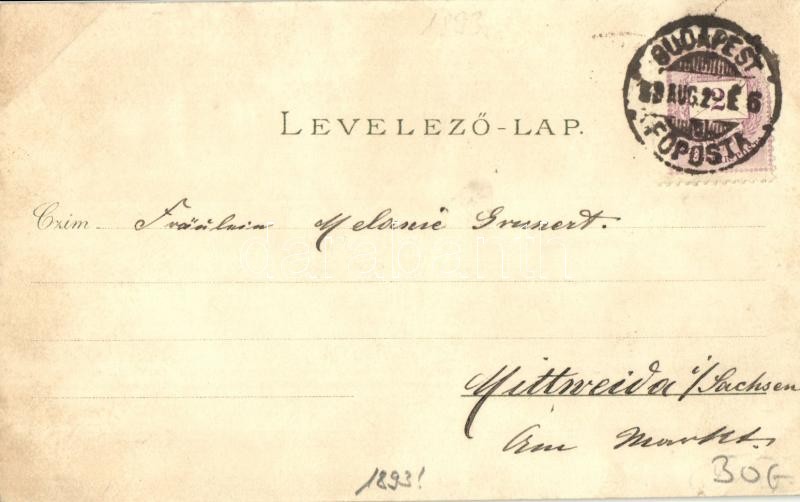 1893
BUDAPEST
93 AUG. 2. É 6
FŐPOSTA
LEVELEZŐ-LAP.
Czim Fräulein Melanie Grunert.
darabanth
Mittweida i/Sachsen
Am Markt.
1893!
BOG